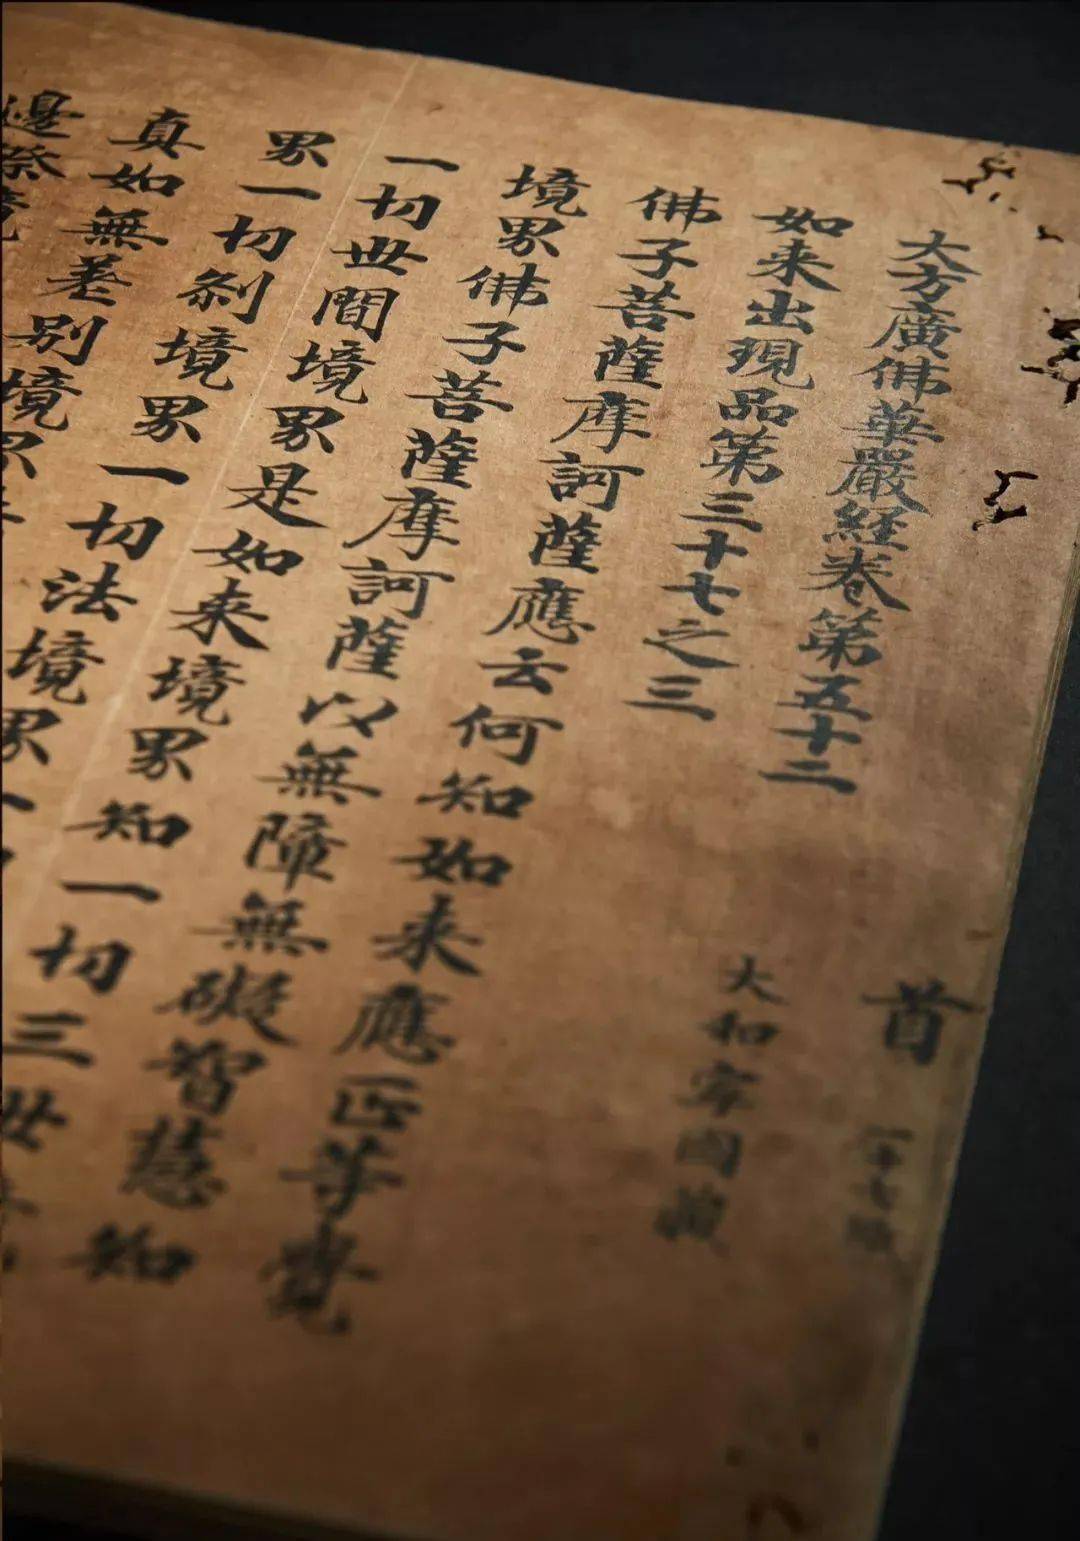 大方廣佛華嚴経卷第五十二 首
如来出現品第三十七之三 大和寧國藏
佛子菩薩摩訶薩應云何知如来應正等覺
境界佛子菩薩摩訶薩以無障無礙智慧知
一切世間境界是如来境界知一切三世
界一切剎境界一切法境界一
真如無差別境界
邊際境